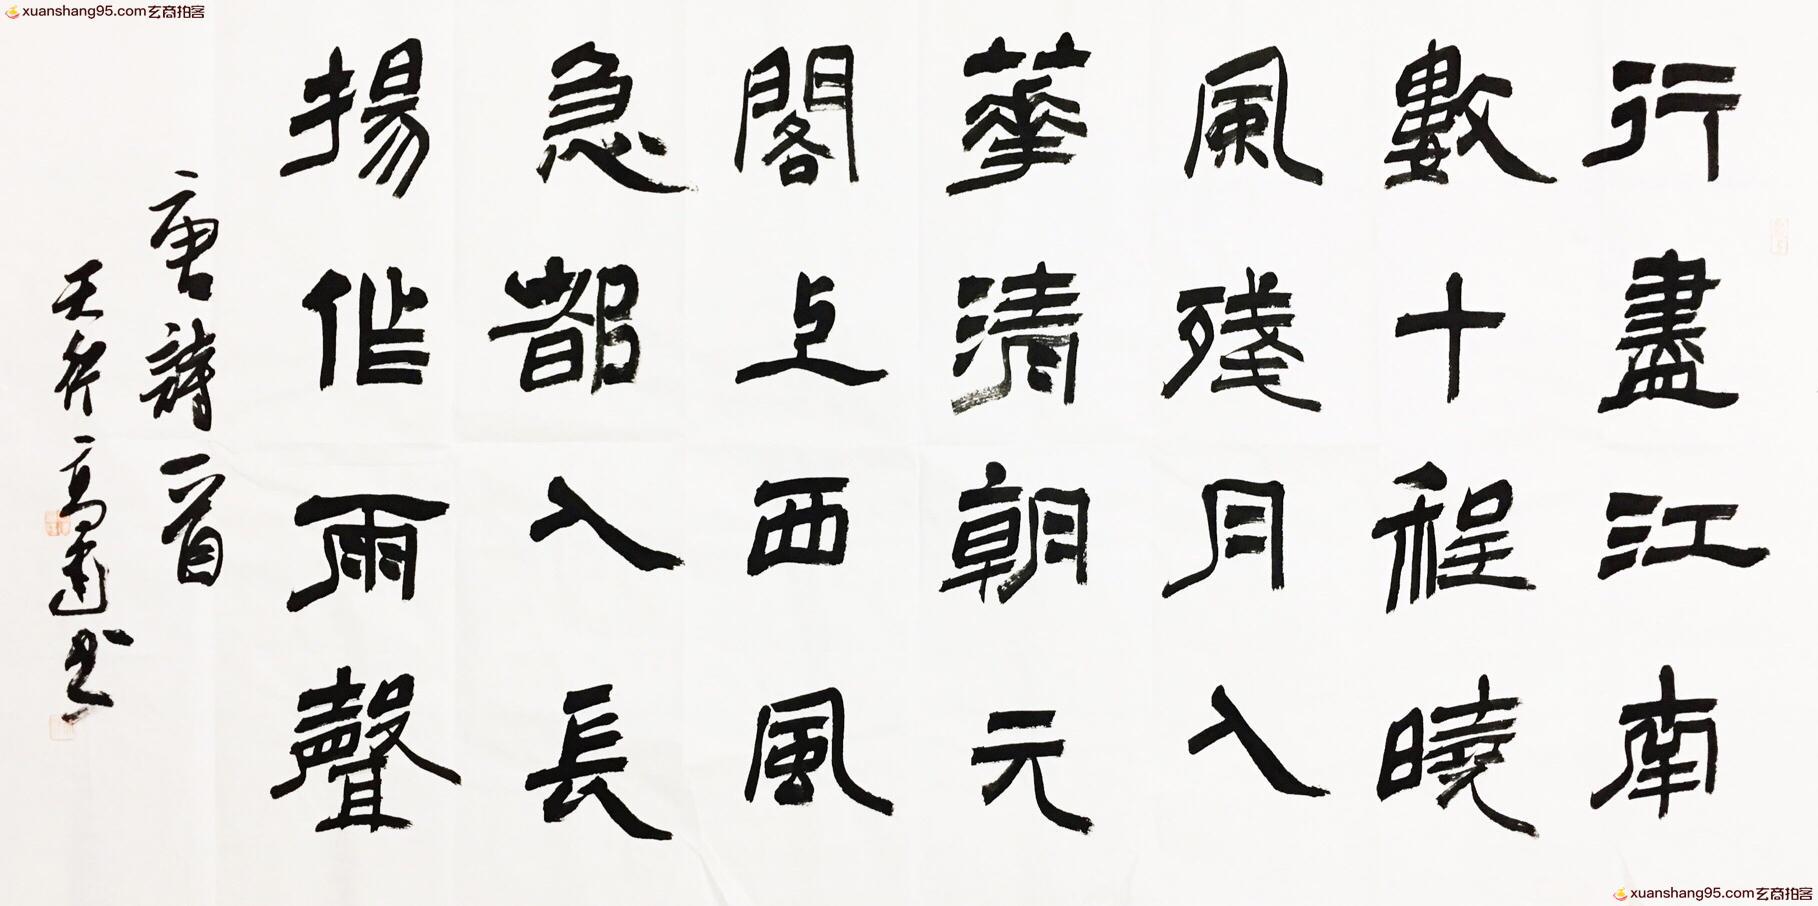 xuanshang95.com玄商拍客
行盡江南
數十程曉
風殘月入
華清朝元
閣上西風
急都入長
揚作雨聲
唐詩一首
天
高
书
xuanshang95.com玄商拍客